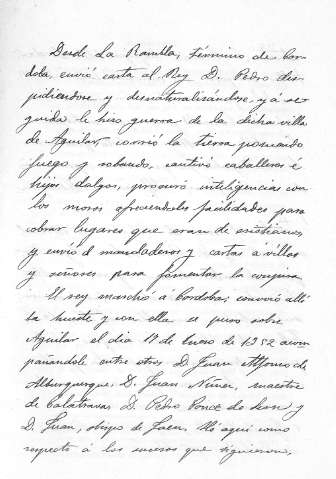 Desde La Rambla, término de Cor-
doba, envió carta al Rey D. Pedro des-
pidiendose y desnaturalisándose, y á se-
guida le hiso guerra de la dicha villa
de Aguilar, corrió la tierra poniendo
fuego y robando, cautivó caballeros é
hijos dalgos, procuró inteligencias con
los moros ofreciendoles facilidades para
cobrar lugares que eran de cristianos,
y envió mandaderos y cartas á villas
y señores para fomentar la conjura.
El rey marchó á Cordoba; convocó allí
la hueste y con ella se puso sobre
Aguilar el dia de Enero de 1352 acom
pañandole entre otros D. Juan Alfonso de
Alburquerque, D. Juan Núnez, maestre
de Calatrava, D. Pedro Ponce de Leon y
D. Juan, obispo de Jaen. Hé aquí como
respecto á los sucesos que siguieron,